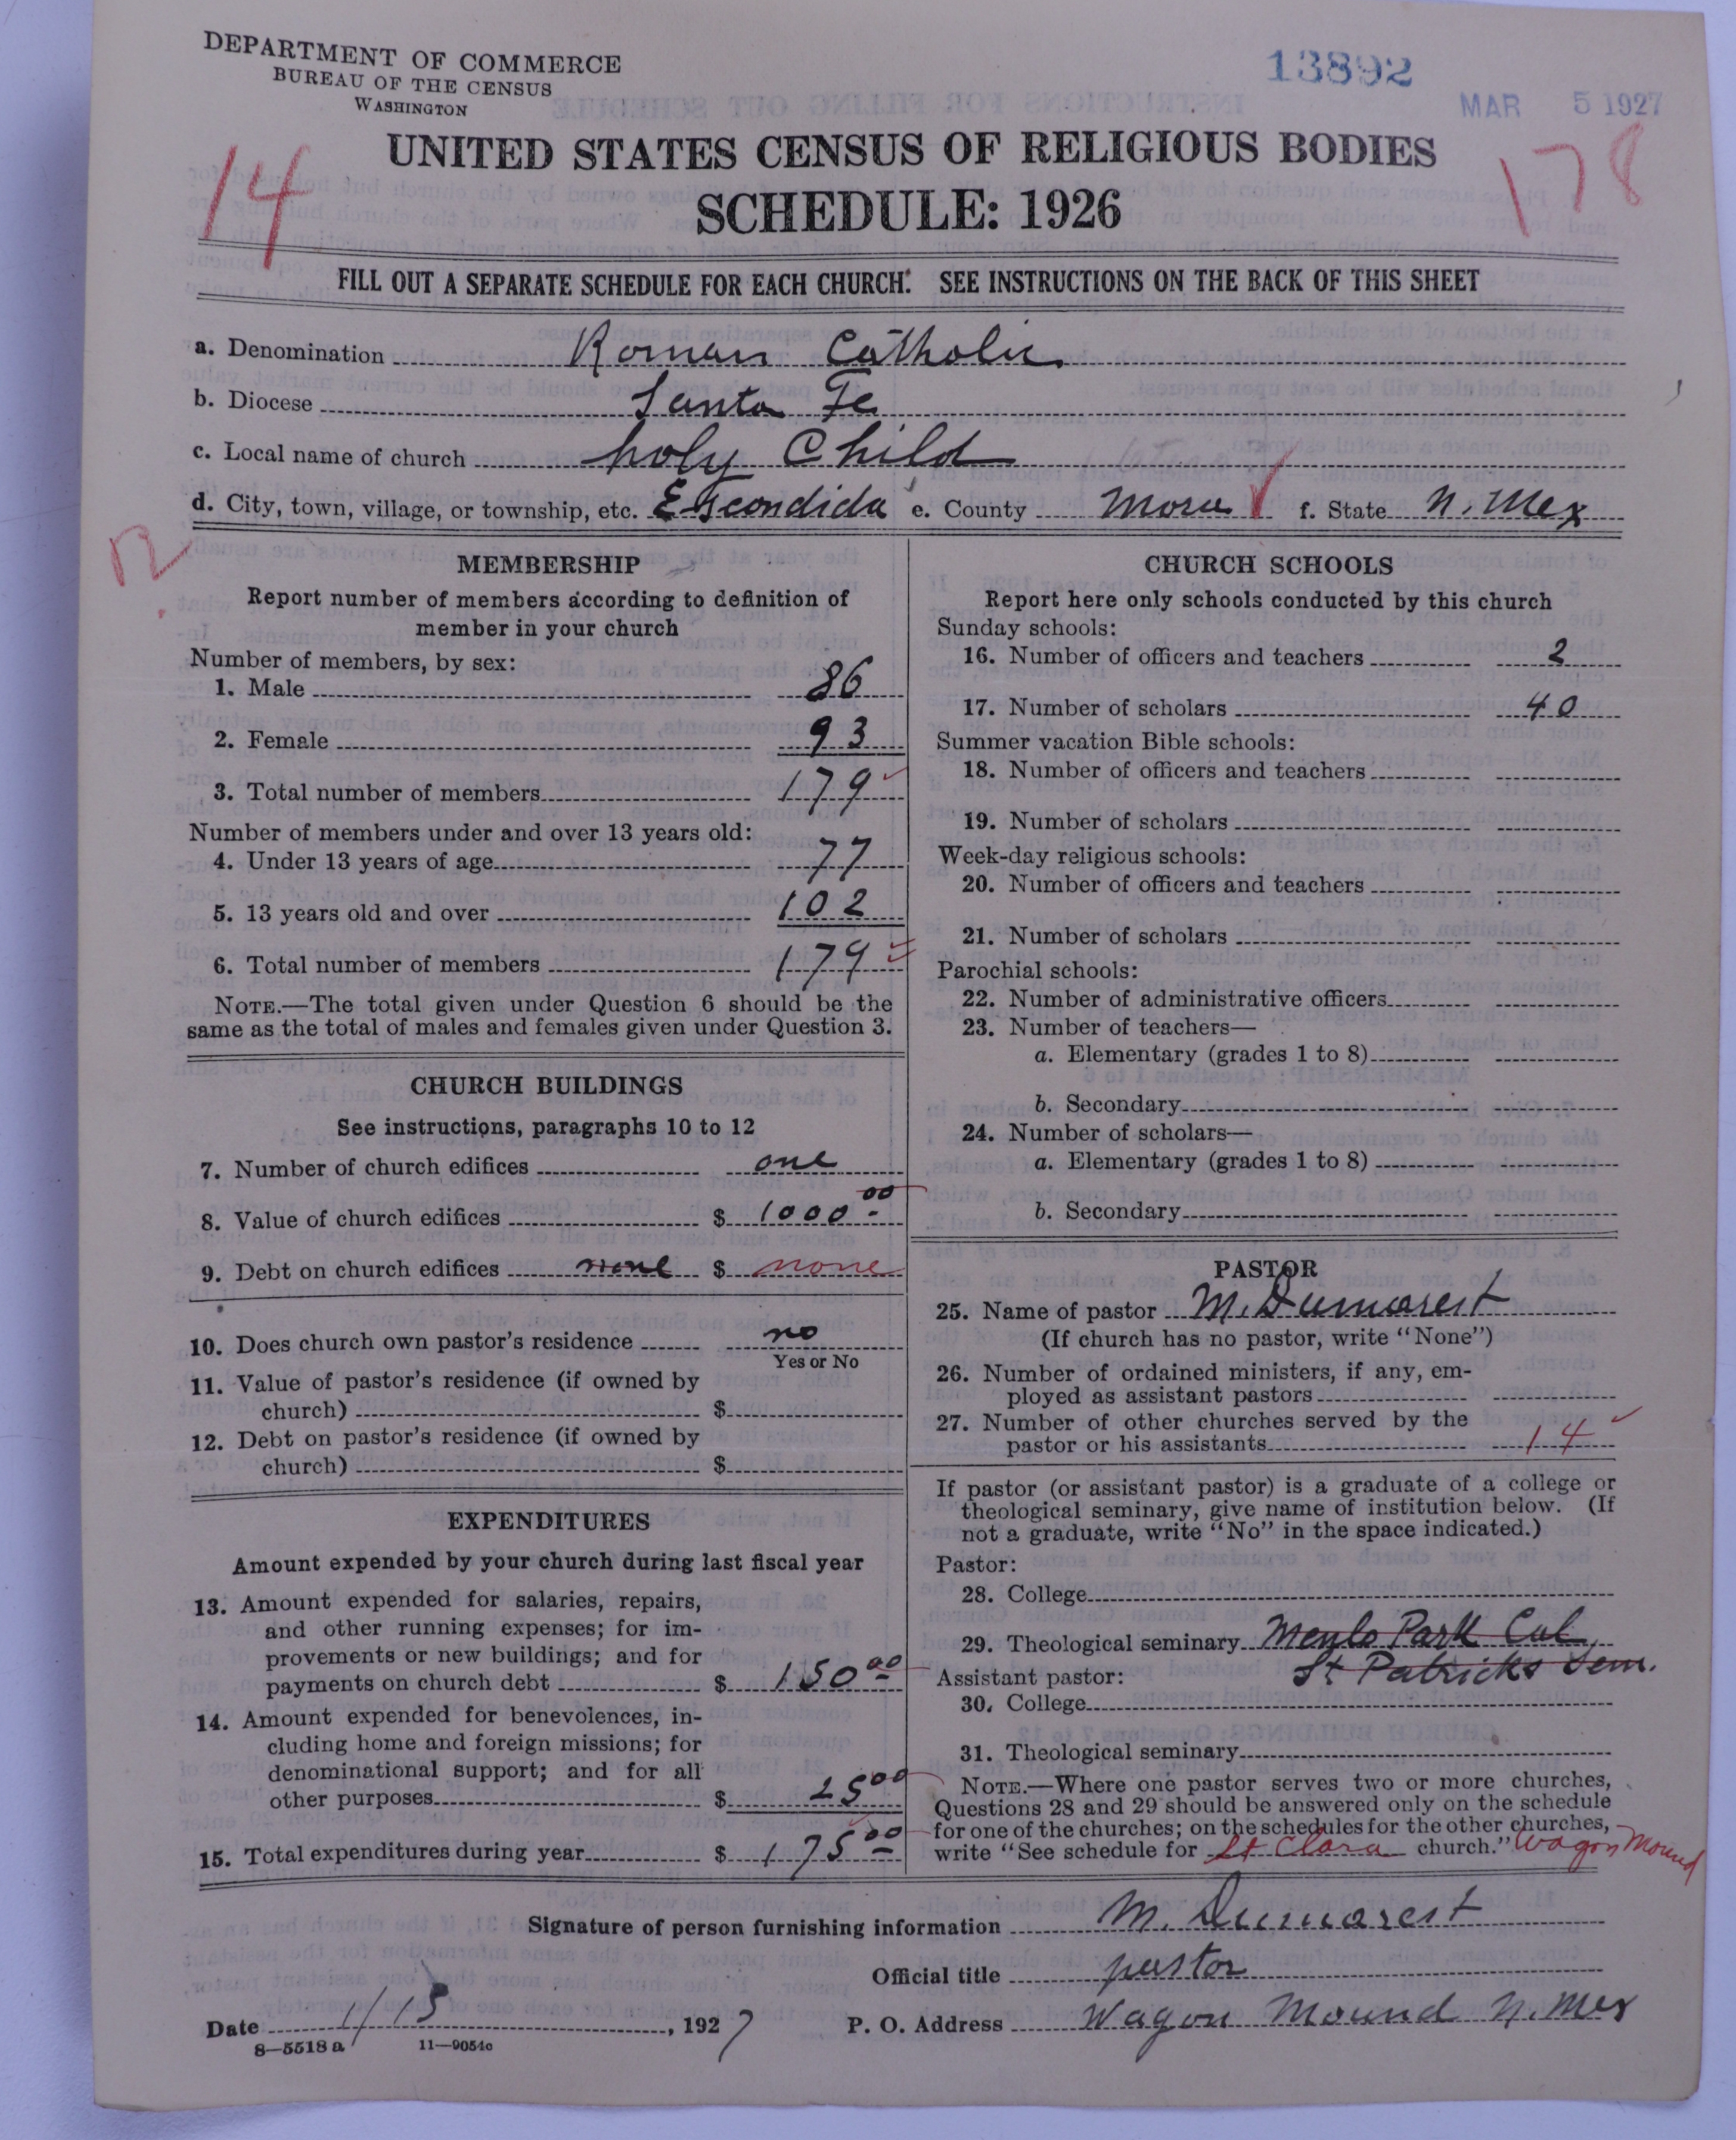 DEPARTMENT OF COMMERCE
BUREAU OF THE CENSUS
WASHINGTON
13892
MAR 5 1927
UNITED STATES CENSUS OF RELIGIOUS BODIES
SCHEDULE: 1926
14
178
FILL OUT A SEPARATE SCHEDULE FOR EACH CHURCH. SEE INSTRUCTIONS ON THE BACK OF THIS SHEET
a. Denomination Roman Catholic
b. Diocese Santa Fe
c. Local name of church holy Child
d. City, town, village, or township, etc. Escondida e. County Mora f. State N. Mex
MEMBERSHIP
Report number of members according to definition of
member in your church
Number of members, by sex:
1. Male 86
2. Female 93
3. Total number of members 179
Number of members under and over 13 years old:
4. Under 13 years of age 77
5. 13 years old and over 102
6. Total number of members 179
NOTE.—The total given under Question 6 should be the
same as the total of males and females given under Question 3.
CHURCH BUILDINGS
See instructions, paragraphs 10 to 12
7. Number of church edifices one
8. Value of church edifices $ 1000.00
9. Debt on church edifices none $ none
10. Does church own pastor's residence no
Yes or No
11. Value of pastor's residence (if owned by
church) $
12. Debt on pastor's residence (if owned by
church) $
EXPENDITURES
Amount expended by your church during last fiscal year
13. Amount expended for salaries, repairs,
and other running expenses; for im-
provements or new buildings; and for
payments on church debt $ 150 00
14. Amount expended for benevolences, in-
cluding home and foreign missions; for
denominational support; and for all
other purposes $ 25 00
15. Total expenditures during year $ 175 00
CHURCH SCHOOLS
Report here only schools conducted by this church
Sunday schools:
16. Number of officers and teachers 2
17. Number of scholars 40
Summer vacation Bible schools:
18. Number of officers and teachers
19. Number of scholars
Week-day religious schools:
20. Number of officers and teachers
21. Number of scholars
Parochial schools:
22. Number of administrative officers
23. Number of teachers—
a. Elementary (grades 1 to 8)
b. Secondary
24. Number of scholars—
a. Elementary (grades 1 to 8)
b. Secondary
PASTOR
25. Name of pastor M. Dumarest
(If church has no pastor, write "None")
26. Number of ordained ministers, if any, em-
ployed as assistant pastors
27. Number of other churches served by the
pastor or his assistants 14
If pastor (or assistant pastor) is a graduate of a college or
theological seminary, give name of institution below. (If
not a graduate, write "No" in the space indicated.)
Pastor:
28. College
29. Theological seminary Menlo Park Cal
St Patricks Sem.
Assistant pastor:
30. College
31. Theological seminary
NOTE.—Where one pastor serves two or more churches,
Questions 28 and 29 should be answered only on the schedule
for one of the churches; on the schedules for the other churches,
write "See schedule for St Clara church." Wagon Mound
Signature of person furnishing information M. Dumarest
Official title pastor
Date 1/15, 1927 P. O. Address Wagon Mound N. Mex
8—5518 a 11—9054c